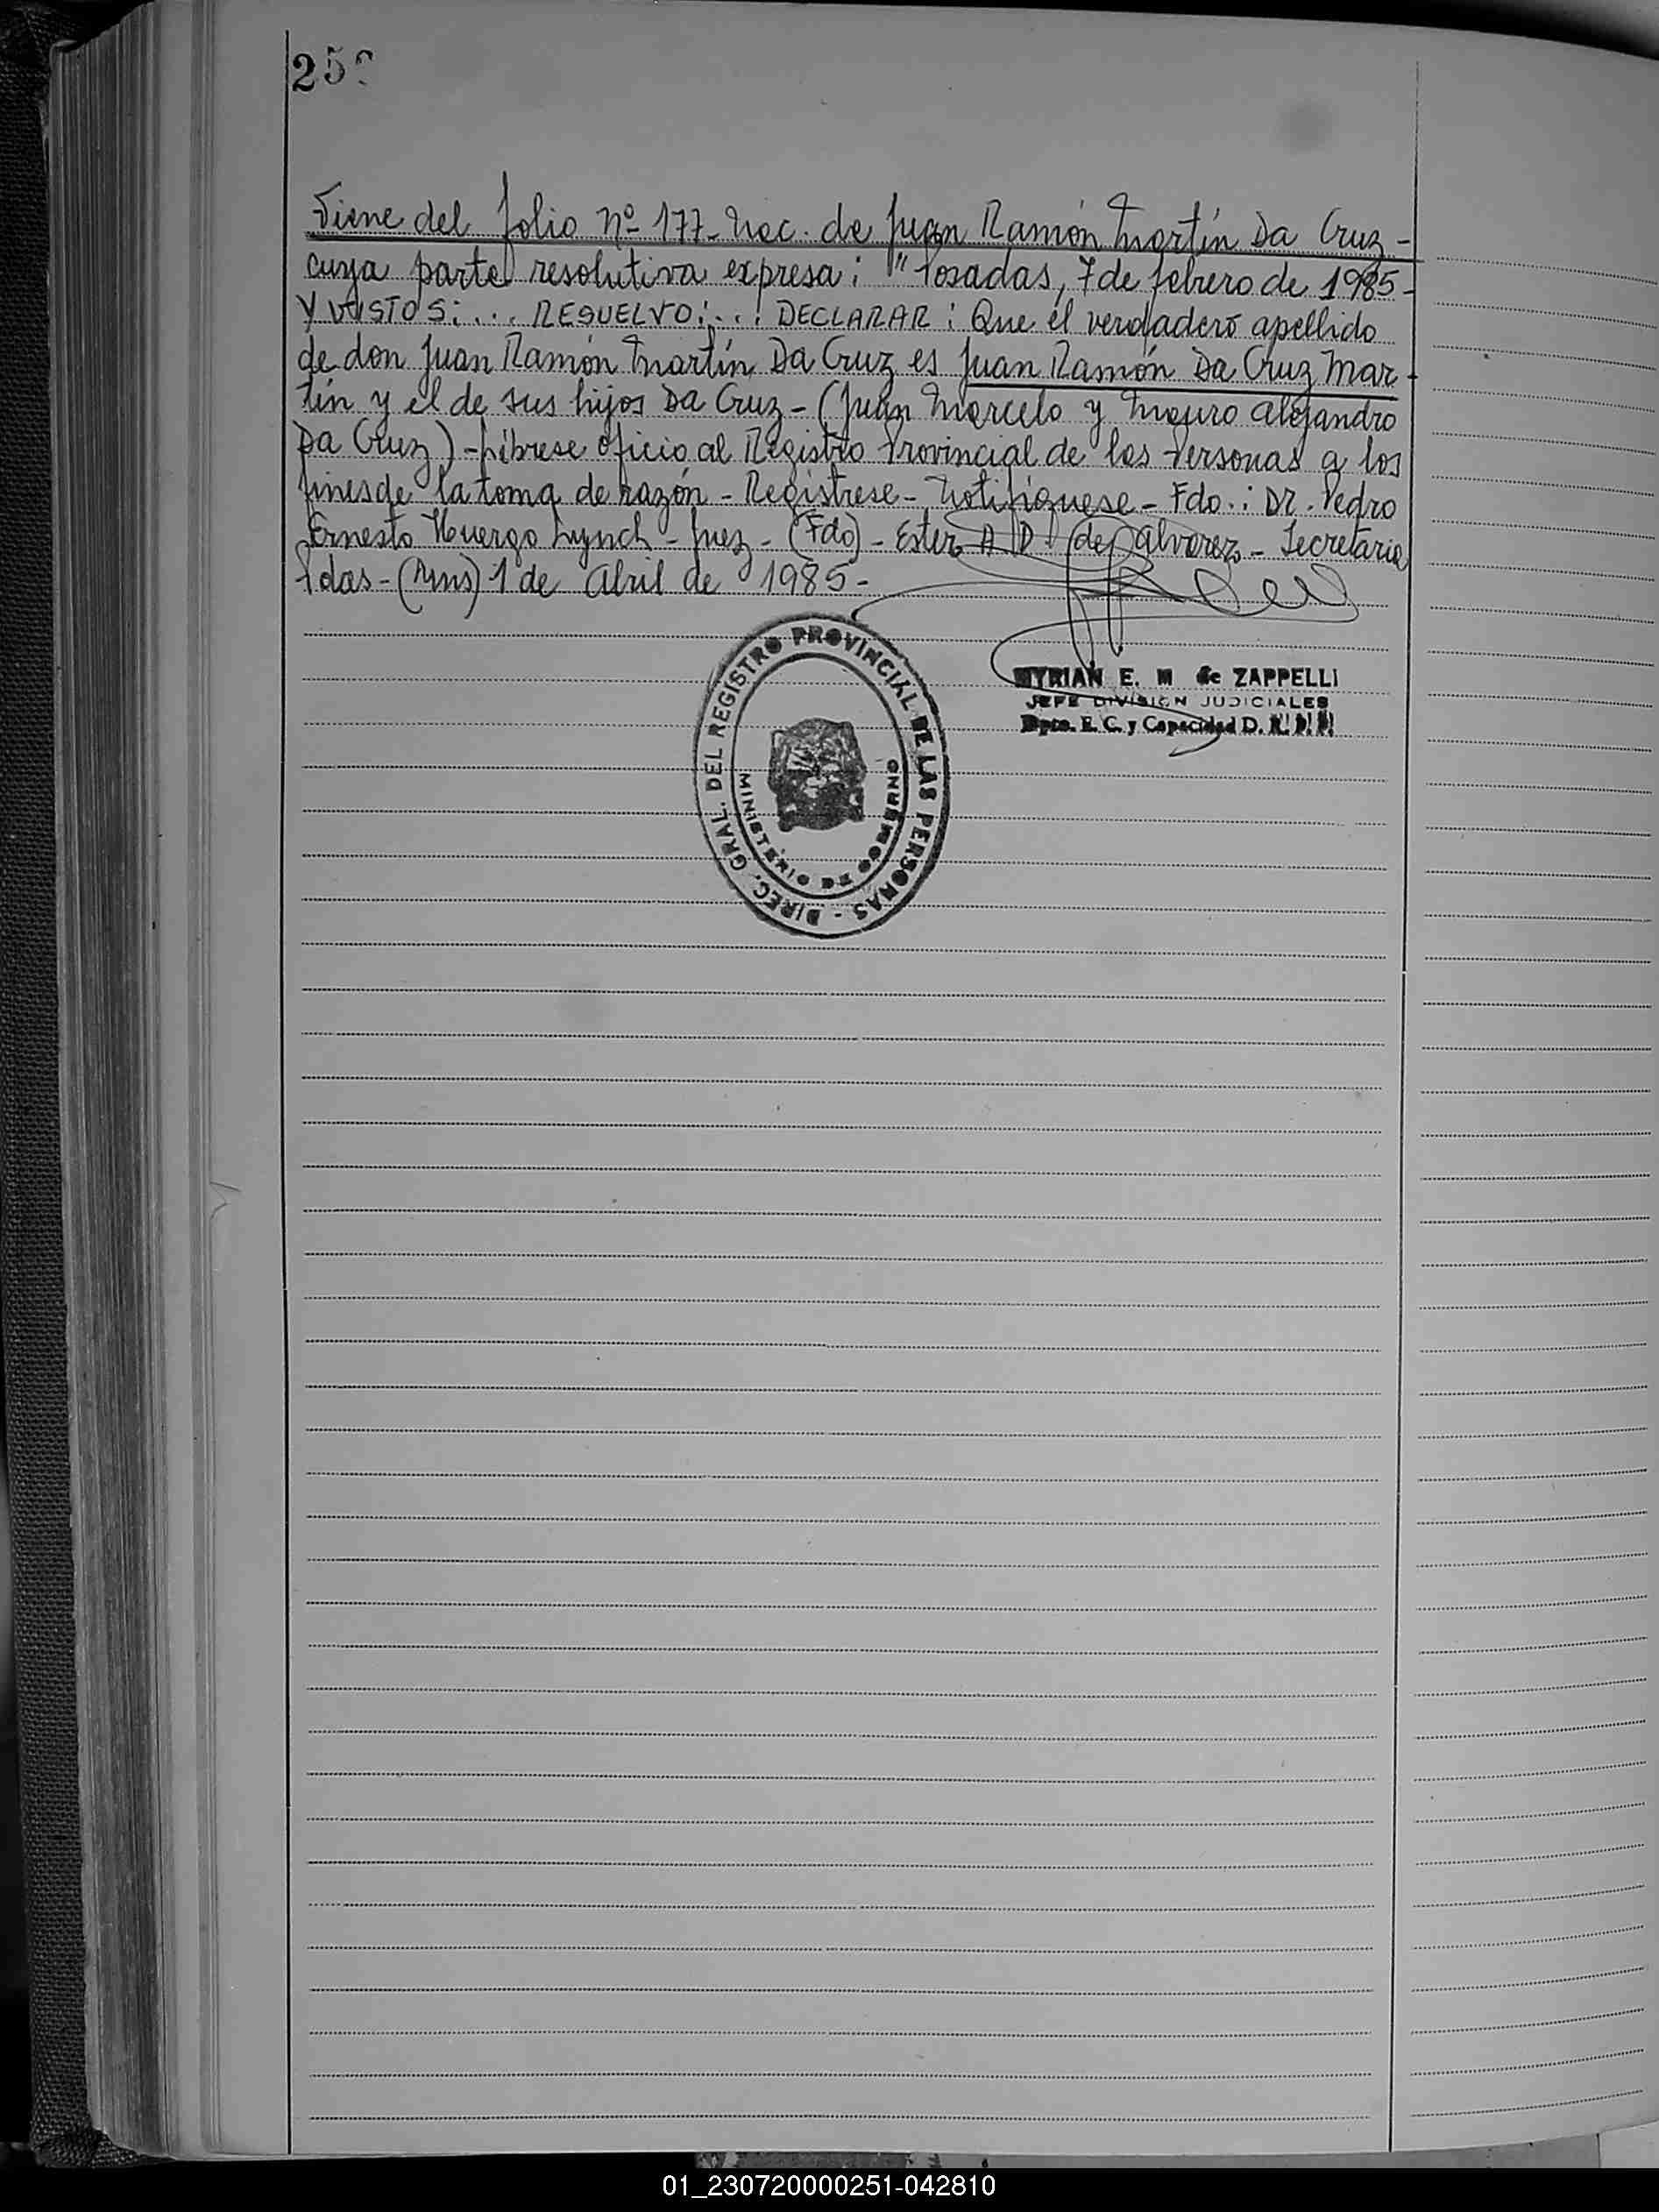 25
Viene del folio Nº 177- Nac. de Juan Ramón Martín Da Cruz-
cuya parte resolutiva expresa: "Posadas, 7 de febrero de 1985-
Y VISTOS:... RESUELVO:...: DECLARAR: Que el verdadero apellido
de don Juan Ramón Martín Da Cruz es Juan Ramón Da Cruz Mar-
tín y el de sus hijos Da Cruz-(Juan Marcelo y Mauro Alejandro
Da Cruz)-Líbrese oficio al Registro Provincial de las Personas a los
fines de la toma de razón-Regístrese-Notifíquese-Fdo.: Dr. Pedro
Ernesto Huergo Lynch-Juez-(Fdo)-Ester A D. de Alvarez-Secretaria
Pdas-(Mns) 1 de Abril de 1985-
DIREC. GRAL. DEL REGISTRO PROVINCIAL DE LAS PERSONAS -
MINISTERIO DE GOBIERNO
MYRIAN E. M de ZAPPELLI
JEFE DIVISION JUDICIALES
Dpto. E. C. y Capacidad D. R. P. P.
01_230720000251-042810